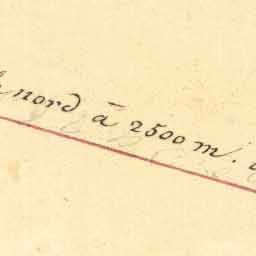 nord à 2500 m.